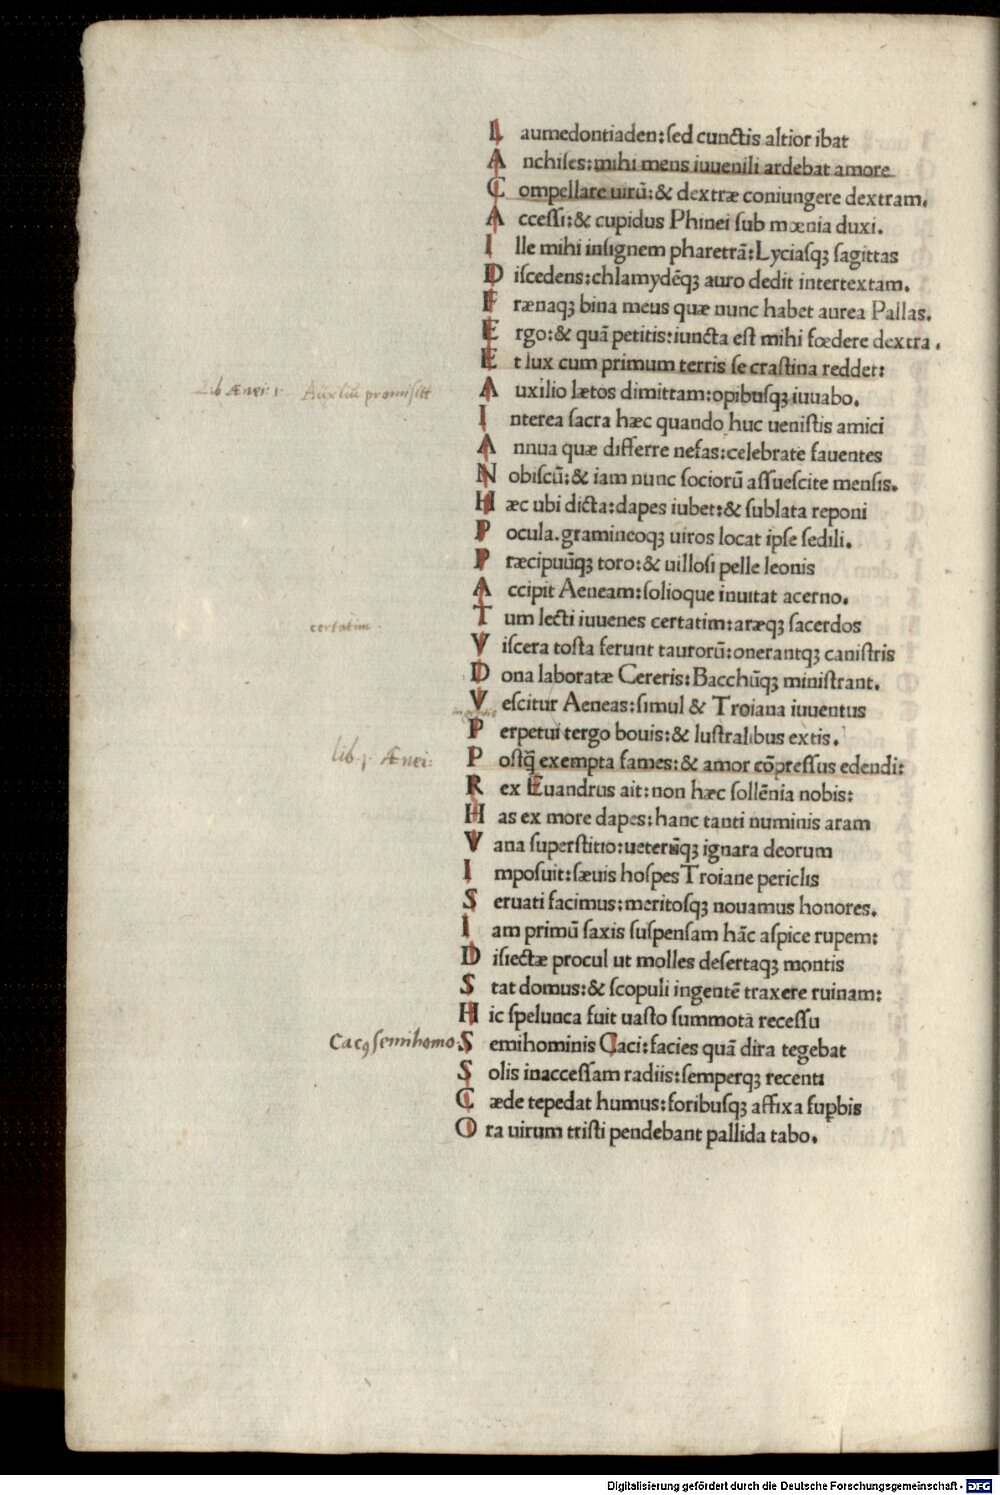 L aumedontiaden:sed cunctis altior ibat
A nchises:mihi mens iuuenili ardebat amore
C ompellare uirū:& dextræ coniungere dextram.
A ccessi:& cupidus Phinei sub mœnia duxi.
I lle mihi insignem pharetrā:Lyciasqꝫ sagittas
D iscedens:chlamydēqꝫ auro dedit intertextam.
F rænaqꝫ bina meus quæ nunc habet aurea Pallas.
E rgo:& quā petitis:iuncta est mihi fœdere dextra.
E t lux cum primum terris se crastina reddet:
Lib Ænei: 1 Auxiliū promisitt
A uxilio lætos dimittam:opibusqꝫ iuuabo.
I nterea sacra hæc quando huc uenistis amici
A nnua quæ differre nefas:celebrate fauentes
N obiscū:& iam nunc sociorū assuescite mensis.
H æc ubi dicta:dapes iubet:& sublata reponi
P ocula.gramineoqꝫ uiros locat ipse sedili.
P ræcipuūqꝫ toro:& uillosi pelle leonis
A ccipit Aeneam:solioque inuitat acerno.
certatim
T um lecti iuuenes certatim:aræqꝫ sacerdos
V iscera tosta ferunt taurorū:onerantqꝫ canistris
D ona laboratæ Cereris:Bacchūqꝫ ministrant.
V escitur Aeneas:simul & Troiana iuuentus
P erpetui tergo bouis:& lustralibus extis.
lib. 1. Ænei:
P ostq̄ exempta fames:& amor cōpressus edendi:
R ex Euandrus ait:non hæc sollēnia nobis:
H as ex more dapes:hanc tanti numinis aram
V ana superstitio:ueterūqꝫ ignara deorum
I mposuit:sæuis hospes Troiane periclis
S eruati facimus:meritosqꝫ nouamus honores.
I am primū saxis suspensam hāc aspice rupem:
D isiectæ procul ut molles desertaqꝫ montis
S tat domus:& scopuli ingentē traxere ruinam:
H ic spelunca fuit uasto summota recessu
Cacꝯ semihomo
S emihominis Caci:facies quā dira tegebat
S olis inaccessam radiis:semperqꝫ recenti
C æde tepedat humus:foribusqꝫ affixa suꝑbis
O ra uirum tristi pendebant pallida tabo.
Digitalisierung gefördert durch die Deutsche Forschungsgemeinschaft - DFG